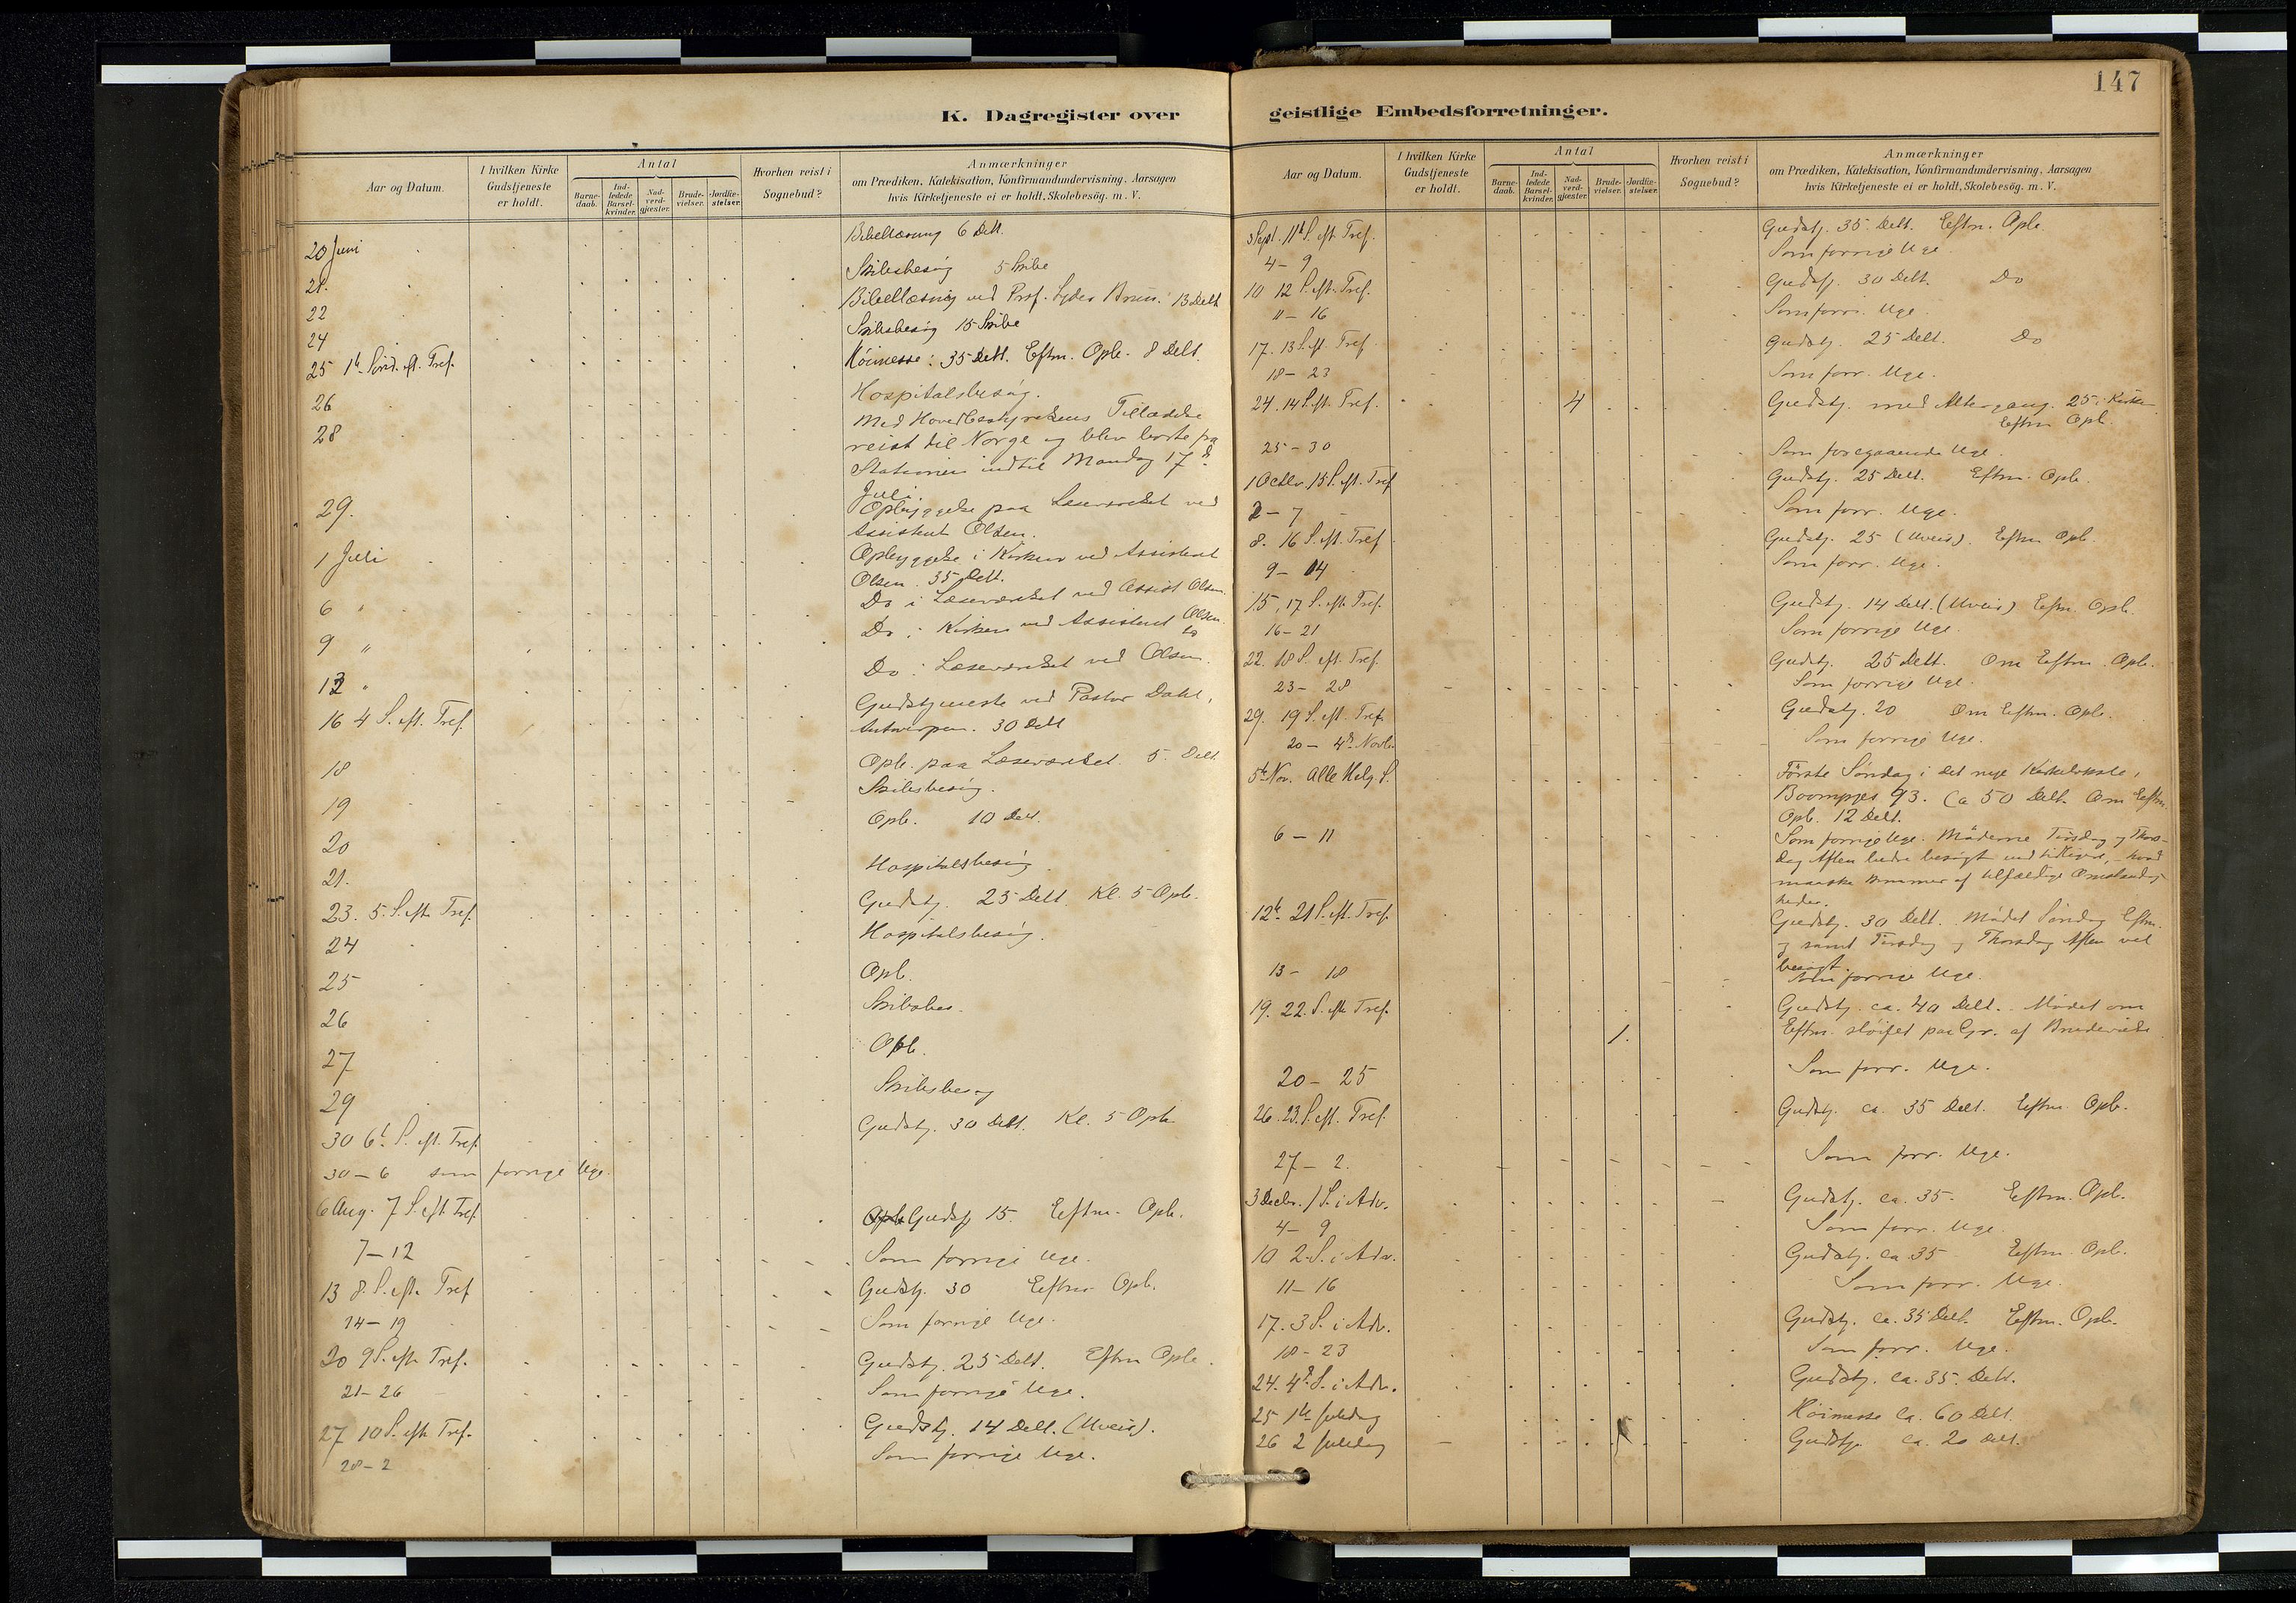 147
K. Dagregister over
geistlige Embedsforretninger.
Aar og Datum.
I hvilken Kirke Gudstjeneste er holdt.
Antal
Barne-daab.
Ind-ledede Barsel-kvinder.
Nad-verd-gjester.
Brude-vielser.
Jordfæ-stelser.
Hvorhen reist i Sognebud?
Anmærkninger
om Prædiken, Katekisation, Konfirmandundervisning, Aarsagen
hvis Kirketjeneste ei er holdt, Skolebesög. m. V.
20 Juni Bibellæsning 6 Delt.
21. Skibsbesøg 5 Skibe
22 Bibellæsning ved Prof. Lyder Brun. 13 Delt
24 Skibsbesøg 15 Skibe
25 1ste Sønd. eft. Tref. Høimesse: 35 Delt. Eftm. Opb. 8 Delt.
26 Hospitalsbesøg.
28 Med Hovedbestyrelsens Tilladelse
reist til Norge og blev borte fra
Stationen indtil Mandag 17de
Juli.
29. Opbyggelse paa Læseværelset ved
Assistent Olsen.
1 Juli Opbyggelse i Kirken ved Assistent
Olsen. 35 Delt.
6 " Do i Læseværelset ved Assist Olsen.
9 " Do i Kirken ved Assistent Olsen
13 " Do i Læseværelset ved Olsen.
16 4 S. eft. Tref. Gudstjeneste ved Pastor Dahl,
Antwerpen. 30 Delt
18 Opb. paa Læseværelset. 5 Delt
19 Skibsbesøg.
20 Opb. 10 Delt.
21. Hospitalsbesøg
23. 5. S. eft Tref. Gudstj. 25 Delt. Kl. 5 Opb.
24 Hospitalsbesøg.
25 Opb.
26 Skibsbes.
27 Opb.
29 Skibsbesøg
30 6t S. eft. Tref. Gudstj. 30 Delt. Kl. 5 Opb
30 - 6 som forrige Uge.
6 Aug. 7 S. eft Tref. Gudstj 15. Eftm. Opb.
7-12 Som forrige Uge.
13 8. S. eft. Tref Gudstj. 30 Eftm Opb.
14-19 Som forrige Uge.
20 9 S. eft Tref. Gudstj. 25 Delt. Eftm Opb.
21-26 Som forrige Uge.
27 10 S. eft Tref. Gudstj. 14 Delt. (Uveir).
28-2 Som forrige Uge.
Aar og Datum.
I hvilken Kirke Gudstjeneste er holdt.
Antal
Barne-daab.
Ind-ledede Barsel-kvinder.
Nad-verd-gjester.
Brude-vielser.
Jordfæ-stelser.
Hvorhen reist i Sognebud?
Anmærkninger
om Prædiken, Katekisation, Konfirmandundervisning, Aarsagen
hvis Kirketjeneste ei er holdt, Skolebesög. m. V.
3 Sept. 11te S. eft Tref. Gudstj. 35 Delt. Eftm. Opb.
4-9 Som forrige Uge
10 12 S. eft. Tref. Gudstj. 30 Delt. Do
11-16 Som forr. Uge.
17. 13 S. eft. Tref. Gudstj. 25 Delt. Do
18-23 Som forr. Uge.
24. 14 S. eft. Tref. 4 Gudstj. med Altergang. 25 i Kirken
Eftm Opb.
25-30 Som foregaaende Uge.
1 Octbr. 15 S. eft. Tref Gudstj. 25 Delt. Eftm. Opb.
2-7 Som forr. Uge.
8. 16 S. eft. Tref Gudstj. 25 (Uveir). Eftm Opb.
9-14 Som forr. Uge.
15, 17 S. eft Tref. Gudstj. 14 Delt. (Uveir) Eftm. Opb.
16-21 Som forrige Uge.
22. 18 S. eft. Tref. Gudstj. 25 Delt. Om Eftm. Opb.
23-28 Som forrige Uge.
29. 19 S. eft. Tref. Gudstj. 20 Om Eftm. Opb.
20 - 4de Novb. Som forrige Uge.
5te Nov. Alle Helg. S. Første Søndag i det nye Kirkelokale,
Boompjes 93. Ca. 50 Delt. Om Eftm.
Opb. 12 Delt.
6 - 11 Som forrige Uge. Møderne Tirsdag og Thors-
dag Aften bedre besøgt end tidligere, - hvad
maaske kommer af tilfældige Omstændig-
heder.
12te 21 S. eft. Tref. Gudstj. 30 Delt. Mødet Søndag Eftm.
og samt Tirsdag og Thorsdag Aften vel
besøgt.
13 - 18 Som forrige Uge.
19. 22. S. eft Tref. 1. Gudstj. ca. 40 Delt. Mødet om
Eftm. sløifet paa Gr. af Brudevielse
20 - 25 Som forr. Uge.
26. 23. S. eft. Tref. Gudstj. ca. 35 Delt. Eftm Opb.
27 - 2. Som forr. Uge.
3 Decbr. 1 S. i Adv. Gudstj. ca. 35. Eftm. Opb.
4 - 9 Som forr. Uge.
10 2. S. i Adv. Gudstj. ca. 35 Eftm. Opb.
11-16 Som forr. Uge.
17. 3 S. i Adv. Gudstj. ca. 35 Delt. Eftm. Opb.
18-23 Som forr. Uge.
24. 4de S. i Adv. Gudstj. ca. 35. Delt.
25 1ste Juledag Høimesse ca. 60 Delt.
26 2 Juledag Gudstj. ca. 20 Delt.